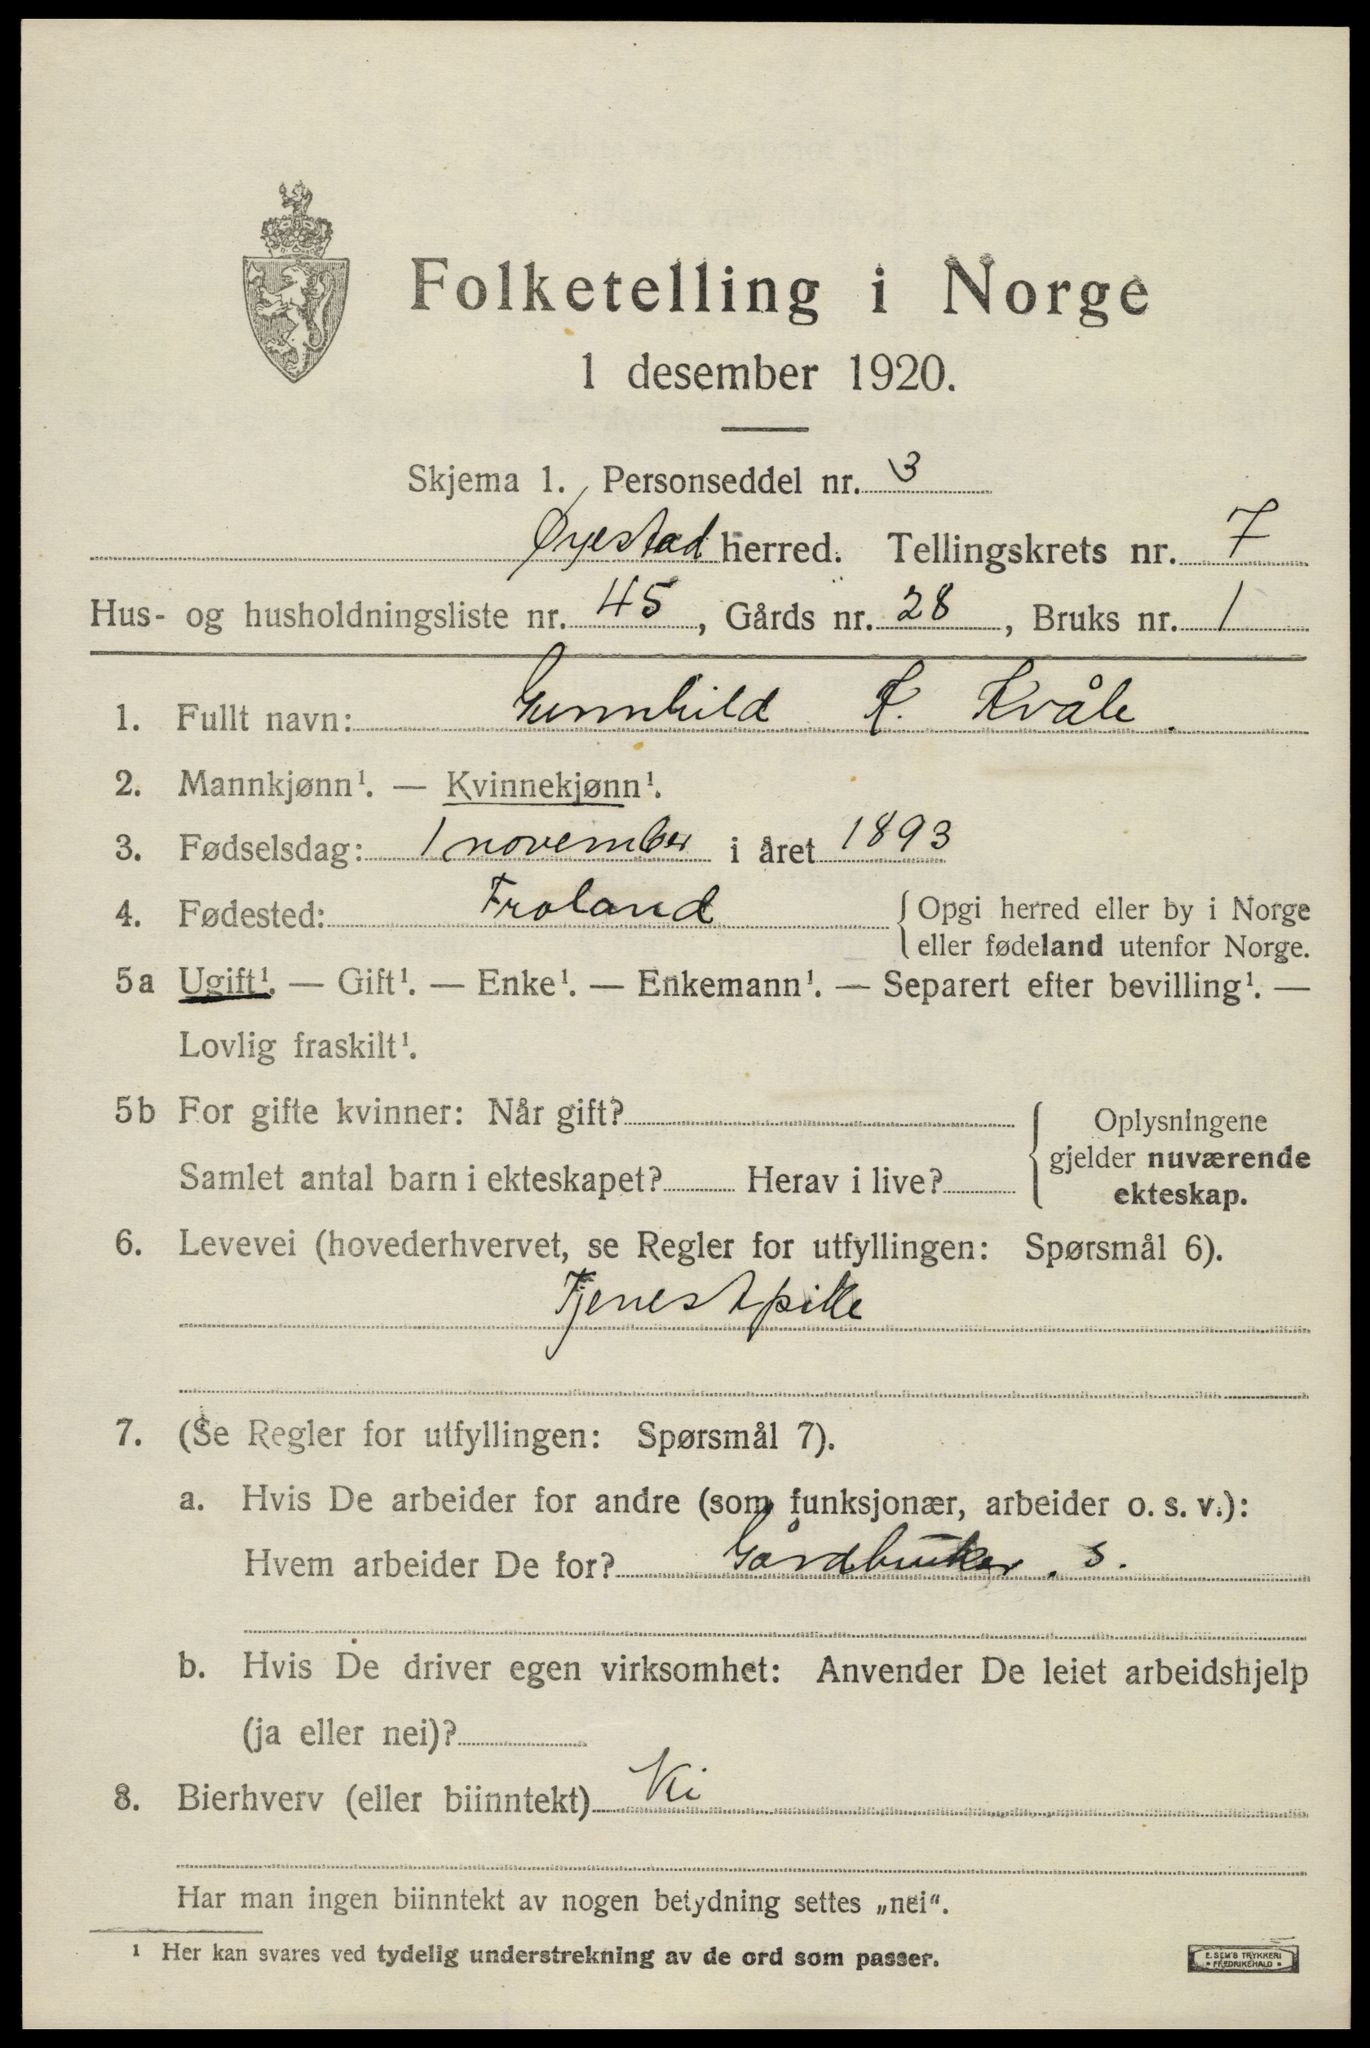 Folketelling i Norge
1 desember 1920.
Skjema 1. Personseddel nr. 3
Øyestad herred. Tellingskrets nr. 7
Hus- og husholdningsliste nr. 45, Gårds nr. 28, Bruks nr. 1
1. Fullt navn: Gunnhild K. Kvåle.
2. Mannkjønn¹. — Kvinnekjønn¹.
3. Fødselsdag: 1 november i året 1893
4. Fødested: Froland { Opgi herred eller by i Norge
eller fødeland utenfor Norge.
5a Ugift¹. — Gift¹. — Enke¹. — Enkemann¹. — Separert efter bevilling¹. —
Lovlig fraskilt¹.
5b For gifte kvinner: Når gift? { Oplysningene
gjelder nuværende
Samlet antal barn i ekteskapet? Herav i live? ekteskap.
6. Levevei (hovederhvervet, se Regler for utfyllingen: Spørsmål 6).
Tjenestpike
7. (Se Regler for utfyllingen: Spørsmål 7).
a. Hvis De arbeider for andre (som funksjonær, arbeider o. s. v.):
Hvem arbeider De for? Gårdbruker. s.
b. Hvis De driver egen virksomhet: Anvender De leiet arbeidshjelp
(ja eller nei)?
8. Bierhverv (eller biinntekt) Nei
Har man ingen biinntekt av nogen betydning settes „nei“.
¹ Her kan svares ved tydelig understrekning av de ord som passer.
E. SEM'S TRYKKERI
• FREDRIKSHALD •